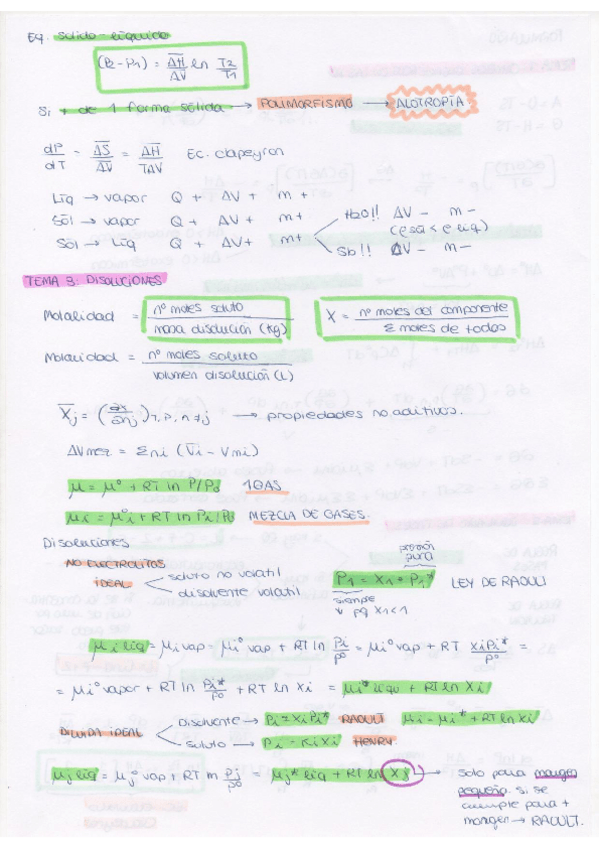 Eq. sólido-líquido
(P2-P1) = ΔH/ΔV ln T2/T1
Si + de 1 forma sólida → POLIMORFISMO → ALOTROPÍA
dP/dT = ΔS/ΔV = ΔH/TΔV Ec. clapeyron
Líq → vapor Q + ΔV + m +
Sól → vapor Q + ΔV + m+
Sól → Líq Q + ΔV+ m+
H2O!! ΔV - m-
(ρsol < ρ líq)
Sb!! ΔV - m-
TEMA 3: DISOLUCIONES
Molalidad = nº moles soluto / masa disolución (Kg)
X = nº moles del componente / Σ moles de todos
Molaridad = nº moles soluto / volumen disolución (L)
X̄j = (∂X/∂nj) T, P, n≠j → propiedades no aditivas.
ΔVmez = Σni (V̄i - Vmi)
μ = μ° + RT ln P/P0 1 GAS
μi = μ°i + RT ln Pi/P0 MEZCLA DE GASES.
Disoluciones
NO ELECTROLITOS
IDEAL
soluto no volátil
disolvente volátil
presión pura
P1 = X1 · P1* LEY DE RAOULT
siempre
↓ pq X1<1
μi líq = μi vap = μi° vap + RT ln Pi/P° = μi° vap + RT ln XiPi*/P° =
= μi° vapor + RT ln Pi*/P° + RT ln Xi = μi* líqu + RT ln Xi
DILUIDA IDEAL
Disolvente → Pi = XiPi* RAOULT μi = μi* + RT ln Xi
Soluto → Pi = KiXi HENRY
μj líq = μj° vap + RT ln Pj/P° = μj* líq + RT ln Xj → Solo para margen
pequeño. Si se
cumple para +
margen → RAOULT.